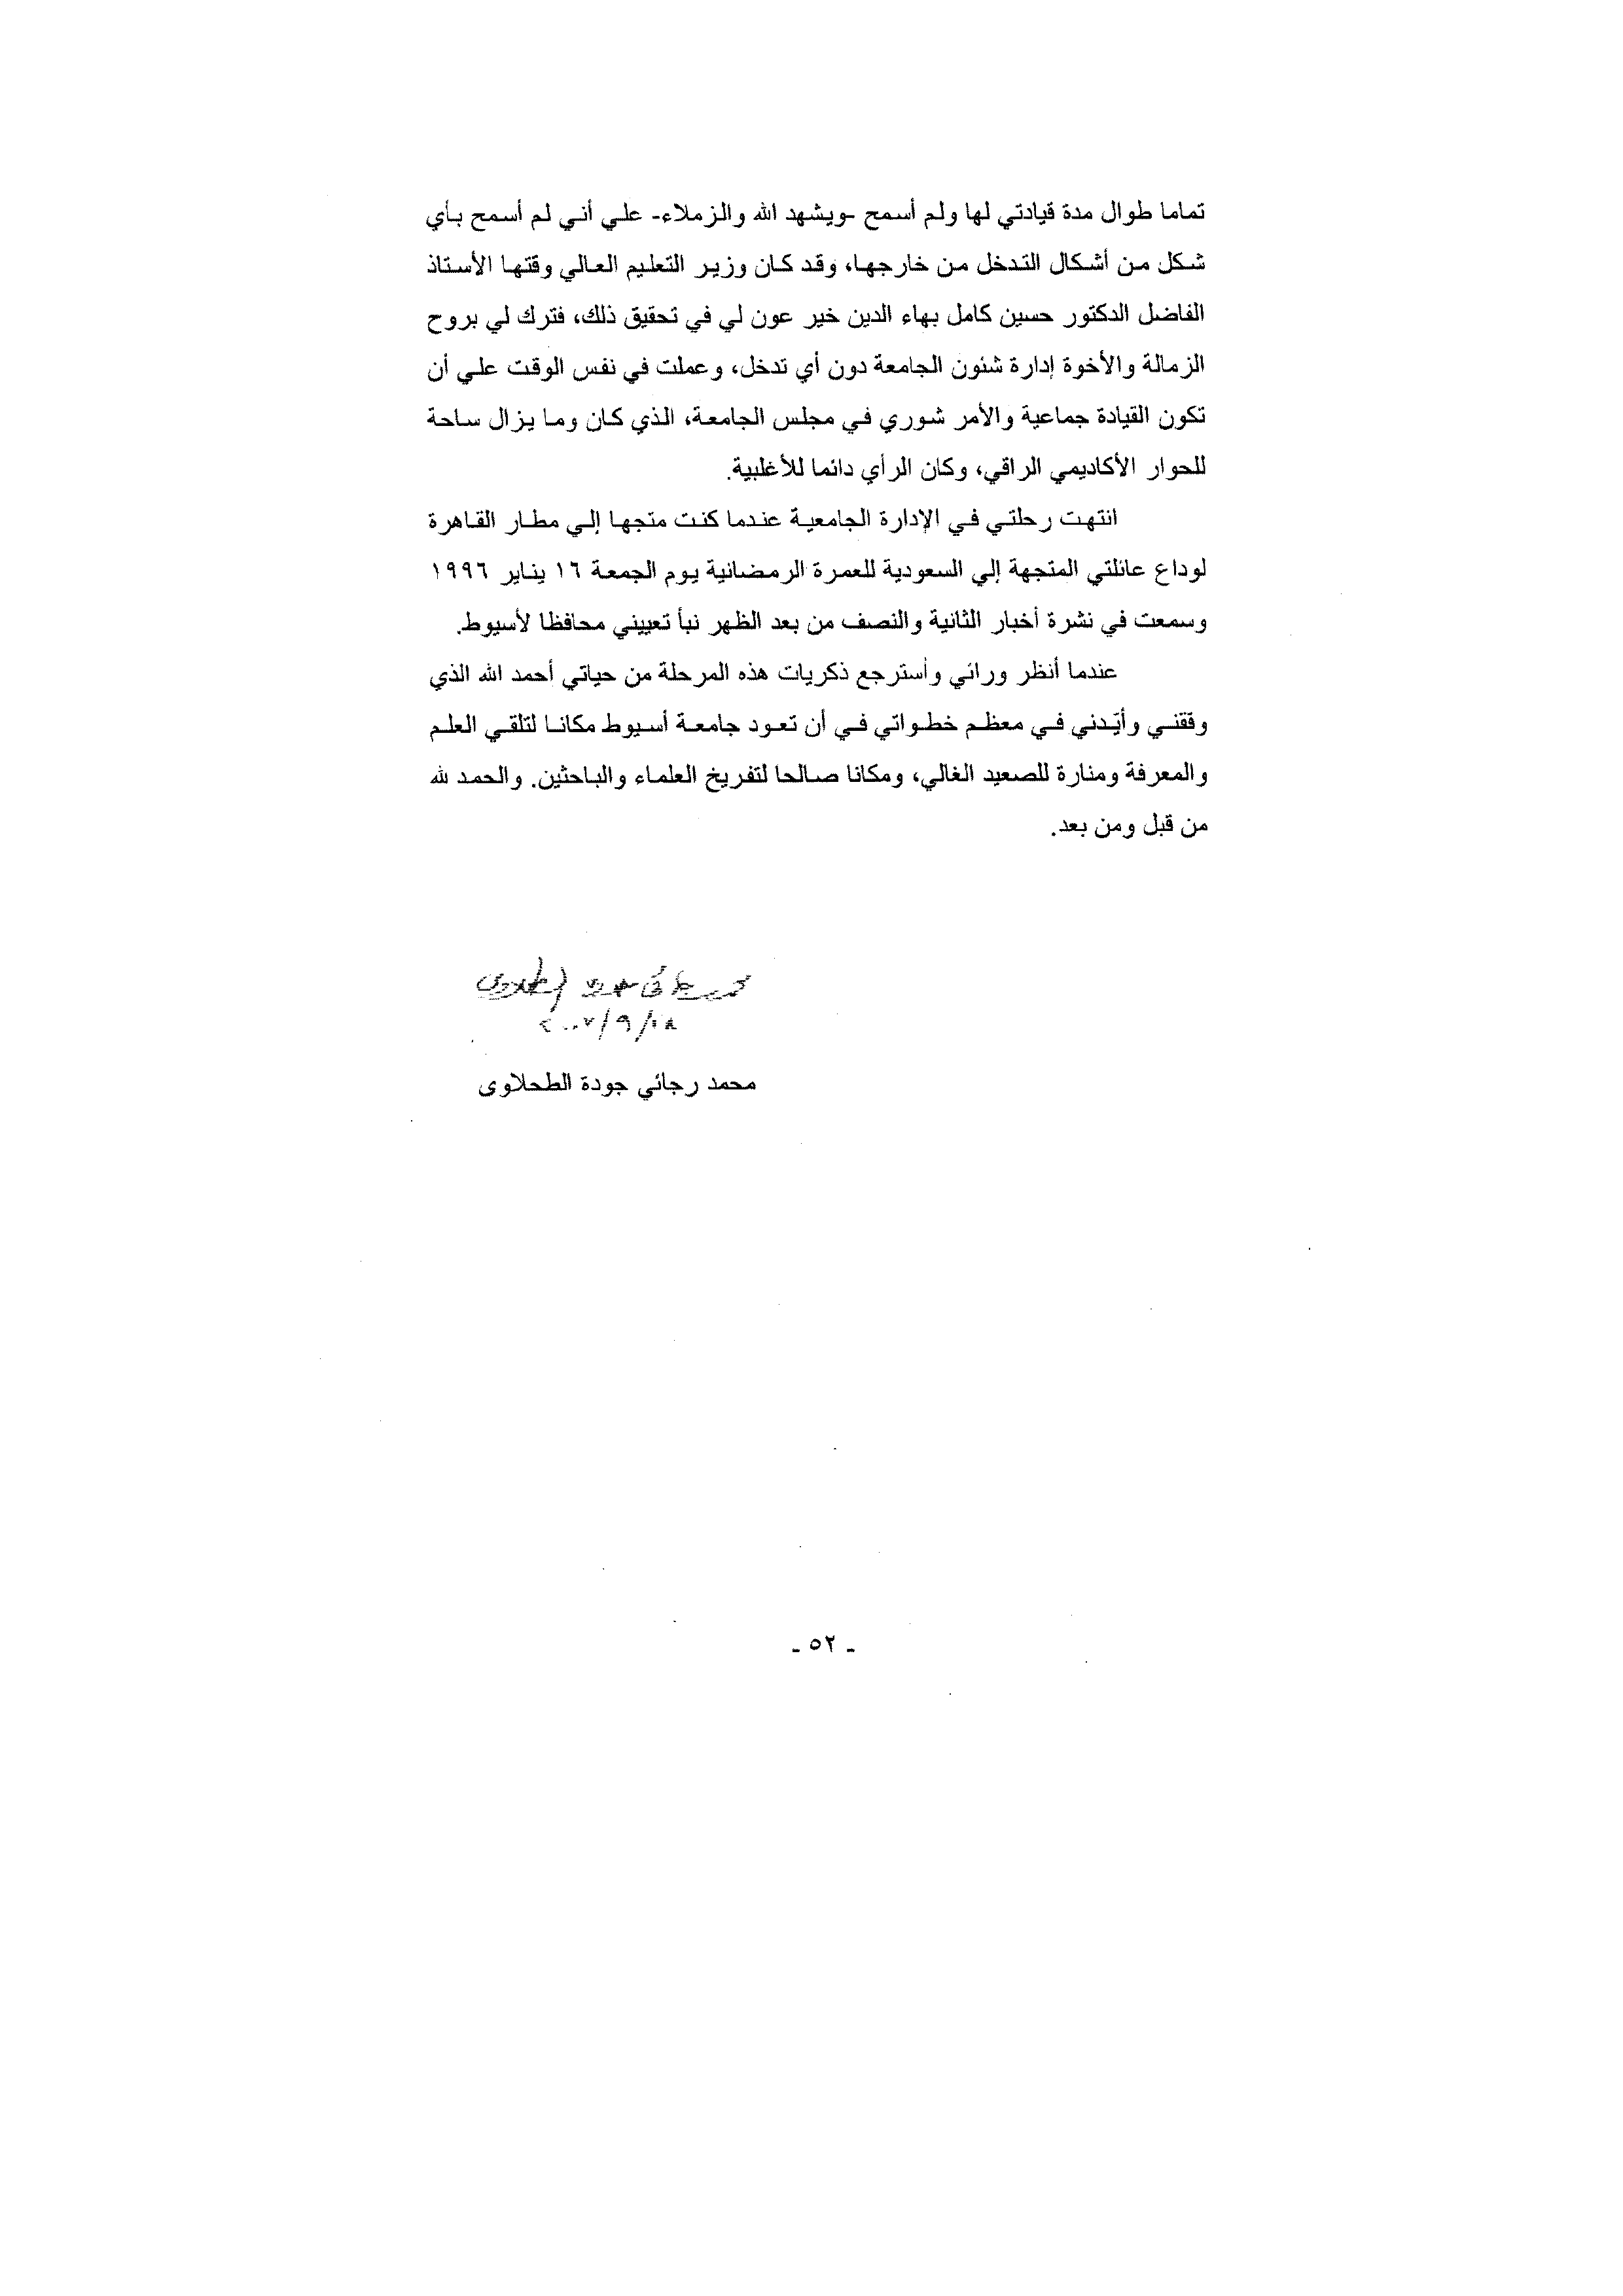 تماما طوال مدة قيادتي لها ولم أسمح -ويشهد الله والزملاء- علي أني لم أسمح بأي
شكل من أشكال التدخل من خارجها، وقد كان وزير التعليم العالي وقتها الأستاذ
الفاضل الدكتور حسين كامل بهاء الدين خير عون لي في تحقيق ذلك، فترك لي بروح
الزمالة والأخوة إدارة شئون الجامعة دون أي تدخل، وعملت في نفس الوقت علي أن
تكون القيادة جماعية والأمر شوري في مجلس الجامعة، الذي كان وما يزال ساحة
للحوار الأكاديمي الراقي، وكان الرأي دائما للأغلبية.
انتهت رحلتي في الإدارة الجامعية عندما كنت متجها إلي مطار القاهرة
لوداع عائلتي المتجهة إلي السعودية للعمرة الرمضانية يوم الجمعة ١٦ يناير ١٩٩٦
وسمعت في نشرة أخبار الثانية والنصف من بعد الظهر نبأ تعييني محافظا لأسيوط.
عندما أنظر ورائي وأسترجع ذكريات هذه المرحلة من حياتي أحمد الله الذي
وفقني وأيّدني في معظم خطواتي في أن تعود جامعة أسيوط مكانا لتلقي العلم
والمعرفة ومنارة للصعيد الغالي، ومكانا صالحا لتفريخ العلماء والباحثين. والحمد لله
من قبل ومن بعد.
محمد رجائي جودة الطحلاوي
محمد رجائي جودة الطحلاوى
- ٥٢ -